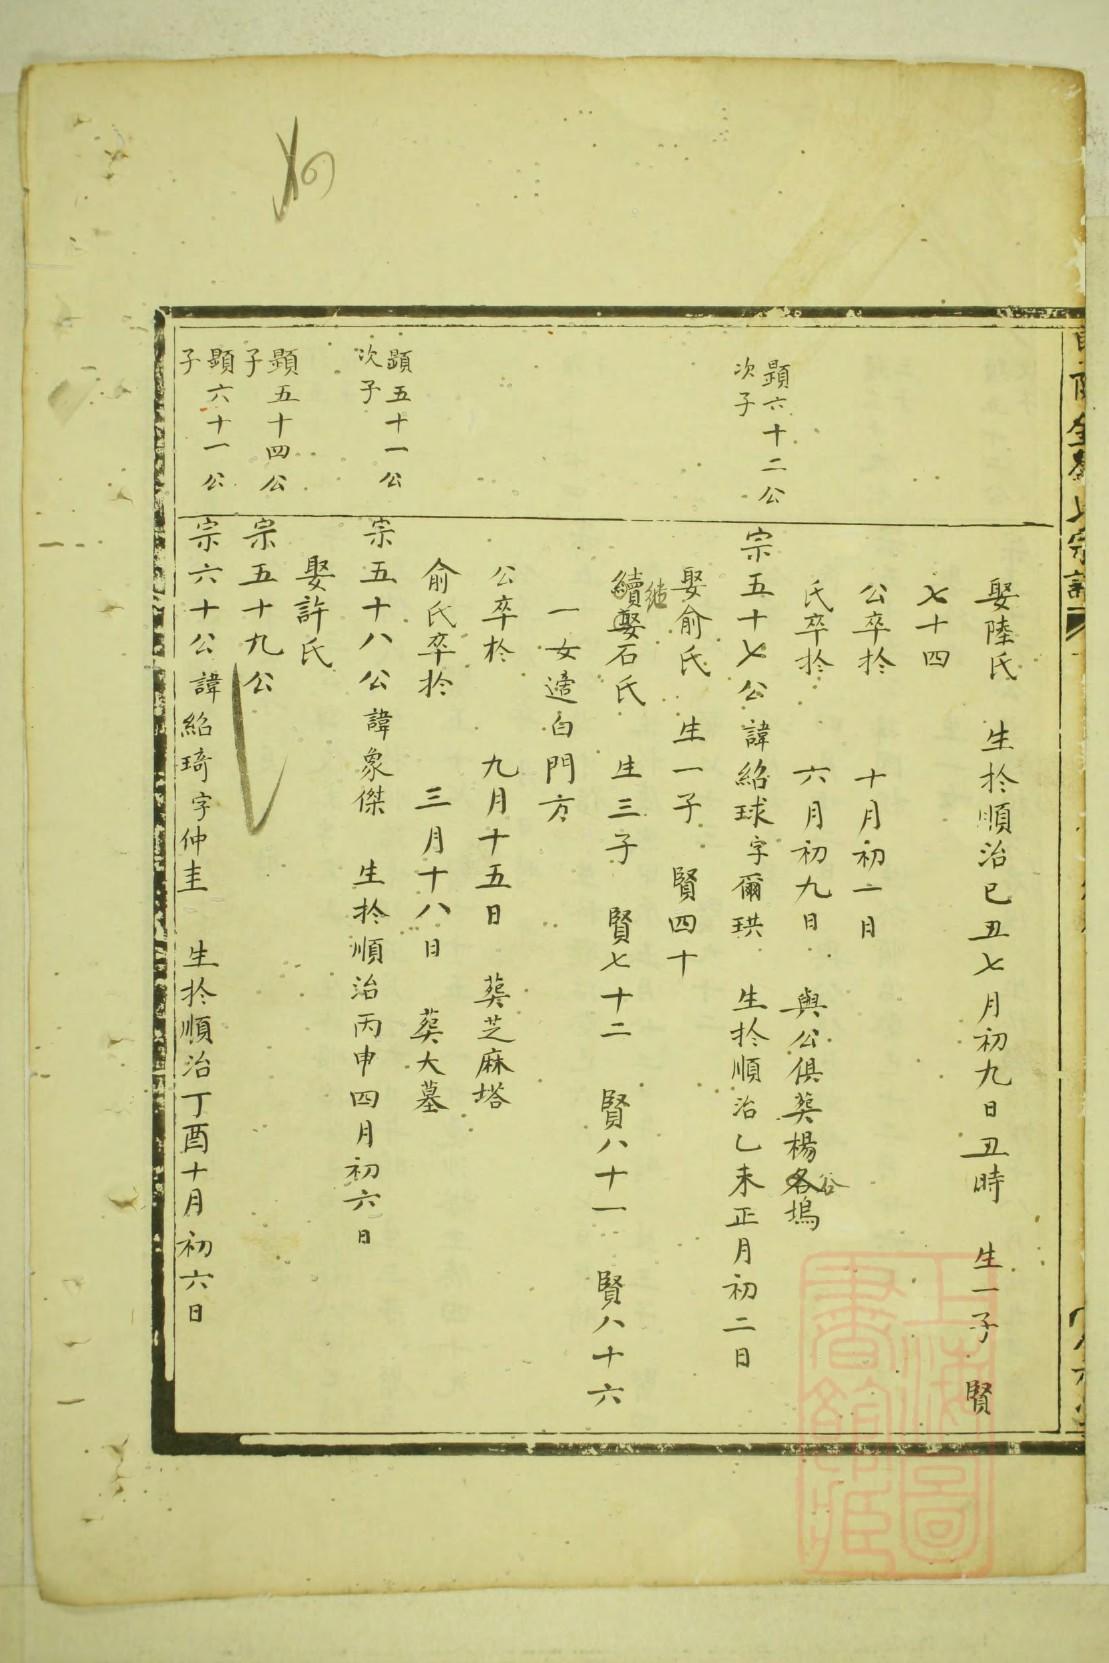 娶陸氏 生於順治己丑七月初九日丑時 生一子 賢
七十四
公卒於 十月初一日
氏卒於 六月初九日 與公俱葬楊各塢
谷
顯六十二公
次子
宗五十七公諱紹球字爾珙 生於順治乙未正月初二日
娶俞氏 生一子 賢四十
繼
續娶石氏 生三子 賢七十二 賢八十一 賢八十六
一女適白門方
公卒於 九月十五日 葬芝麻塔
俞氏卒於 三月十八日 葬大墓
顯五十一公
次子
宗五十八公諱象傑 生於順治丙申四月初六日
娶許氏
顯五十四公
子
宗五十九公
顯六十一公
子
宗六十公諱紹琦字仲圭 生於順治丁酉十月初六日
上海圖
書館藏